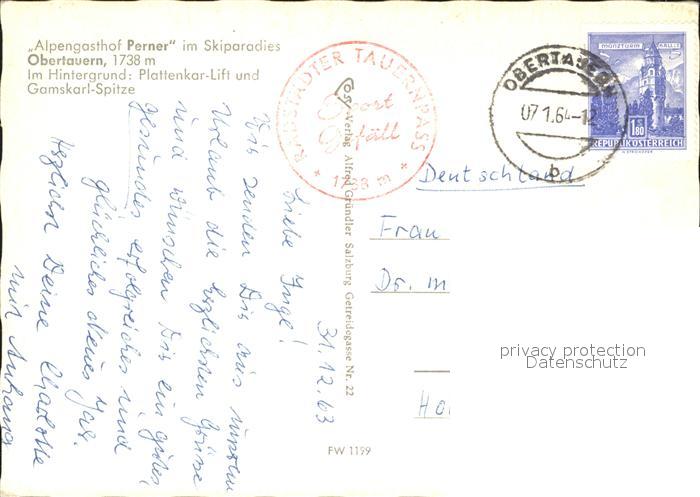 „Alpengasthof Perner“ im Skiparadies
Obertauern, 1738 m
Im Hintergrund: Plattenkar-Lift und
Gamskarl-Spitze
RADSTÄDTER TAUERNPASS
1738 m
OBERTAUERN
07.1.64-12
b
MÜNZTURM HALL I.T.
1.80
REPUBLIK ÖSTERREICH
Deutschland
Frau
Dr. m
Ha
privacy protection
Datenschutz
Cosy-Verlag Alfred Gründler Salzburg Getreidegasse Nr. 22
FW 1199
31.12.63
Liebe Inge!
Wir senden Dir aus unserem
Urlaub die herzlichsten Grüsse
und wünschen Dir ein gutes
gesundes erfolgreiches und
glückliches neues Jahr.
Herzlichst Deine Charlotte
mit Anhang